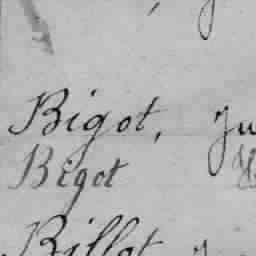 Bigot, Ju
Bigot
Billot